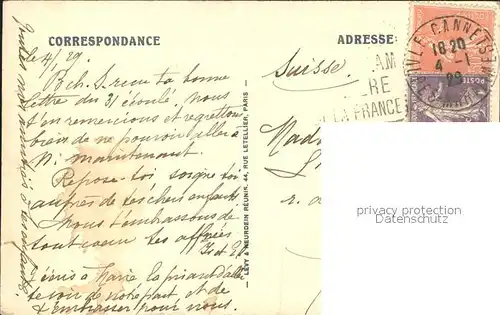 CORRESPONDANCE
ADRESSE
le 4/1 29.
Suisse.
B ch. S. reçu ta bonne
lettre du 31 écoulé, nous
t'en remercions et regrettons
bien de ne pouvoir aller à
N. maintenant.
Repose-toi soigne toi
auprès de tes chers enfants
Nous t'embrassons de
tout cœur tes
J'écris à Marie la priant d'aller
te voir de notre part, et de
t'embrasser pour nous.
Toutes nos amitiés à tes enfants.
LÉVY & NEURDEIN RÉUNIS, 44, RUE LETELLIER, PARIS
VILLE CANNET
18 20
4 -1
29
POSTE
AM
RE
LA FRANCE
Mad
privacy protection
watermark